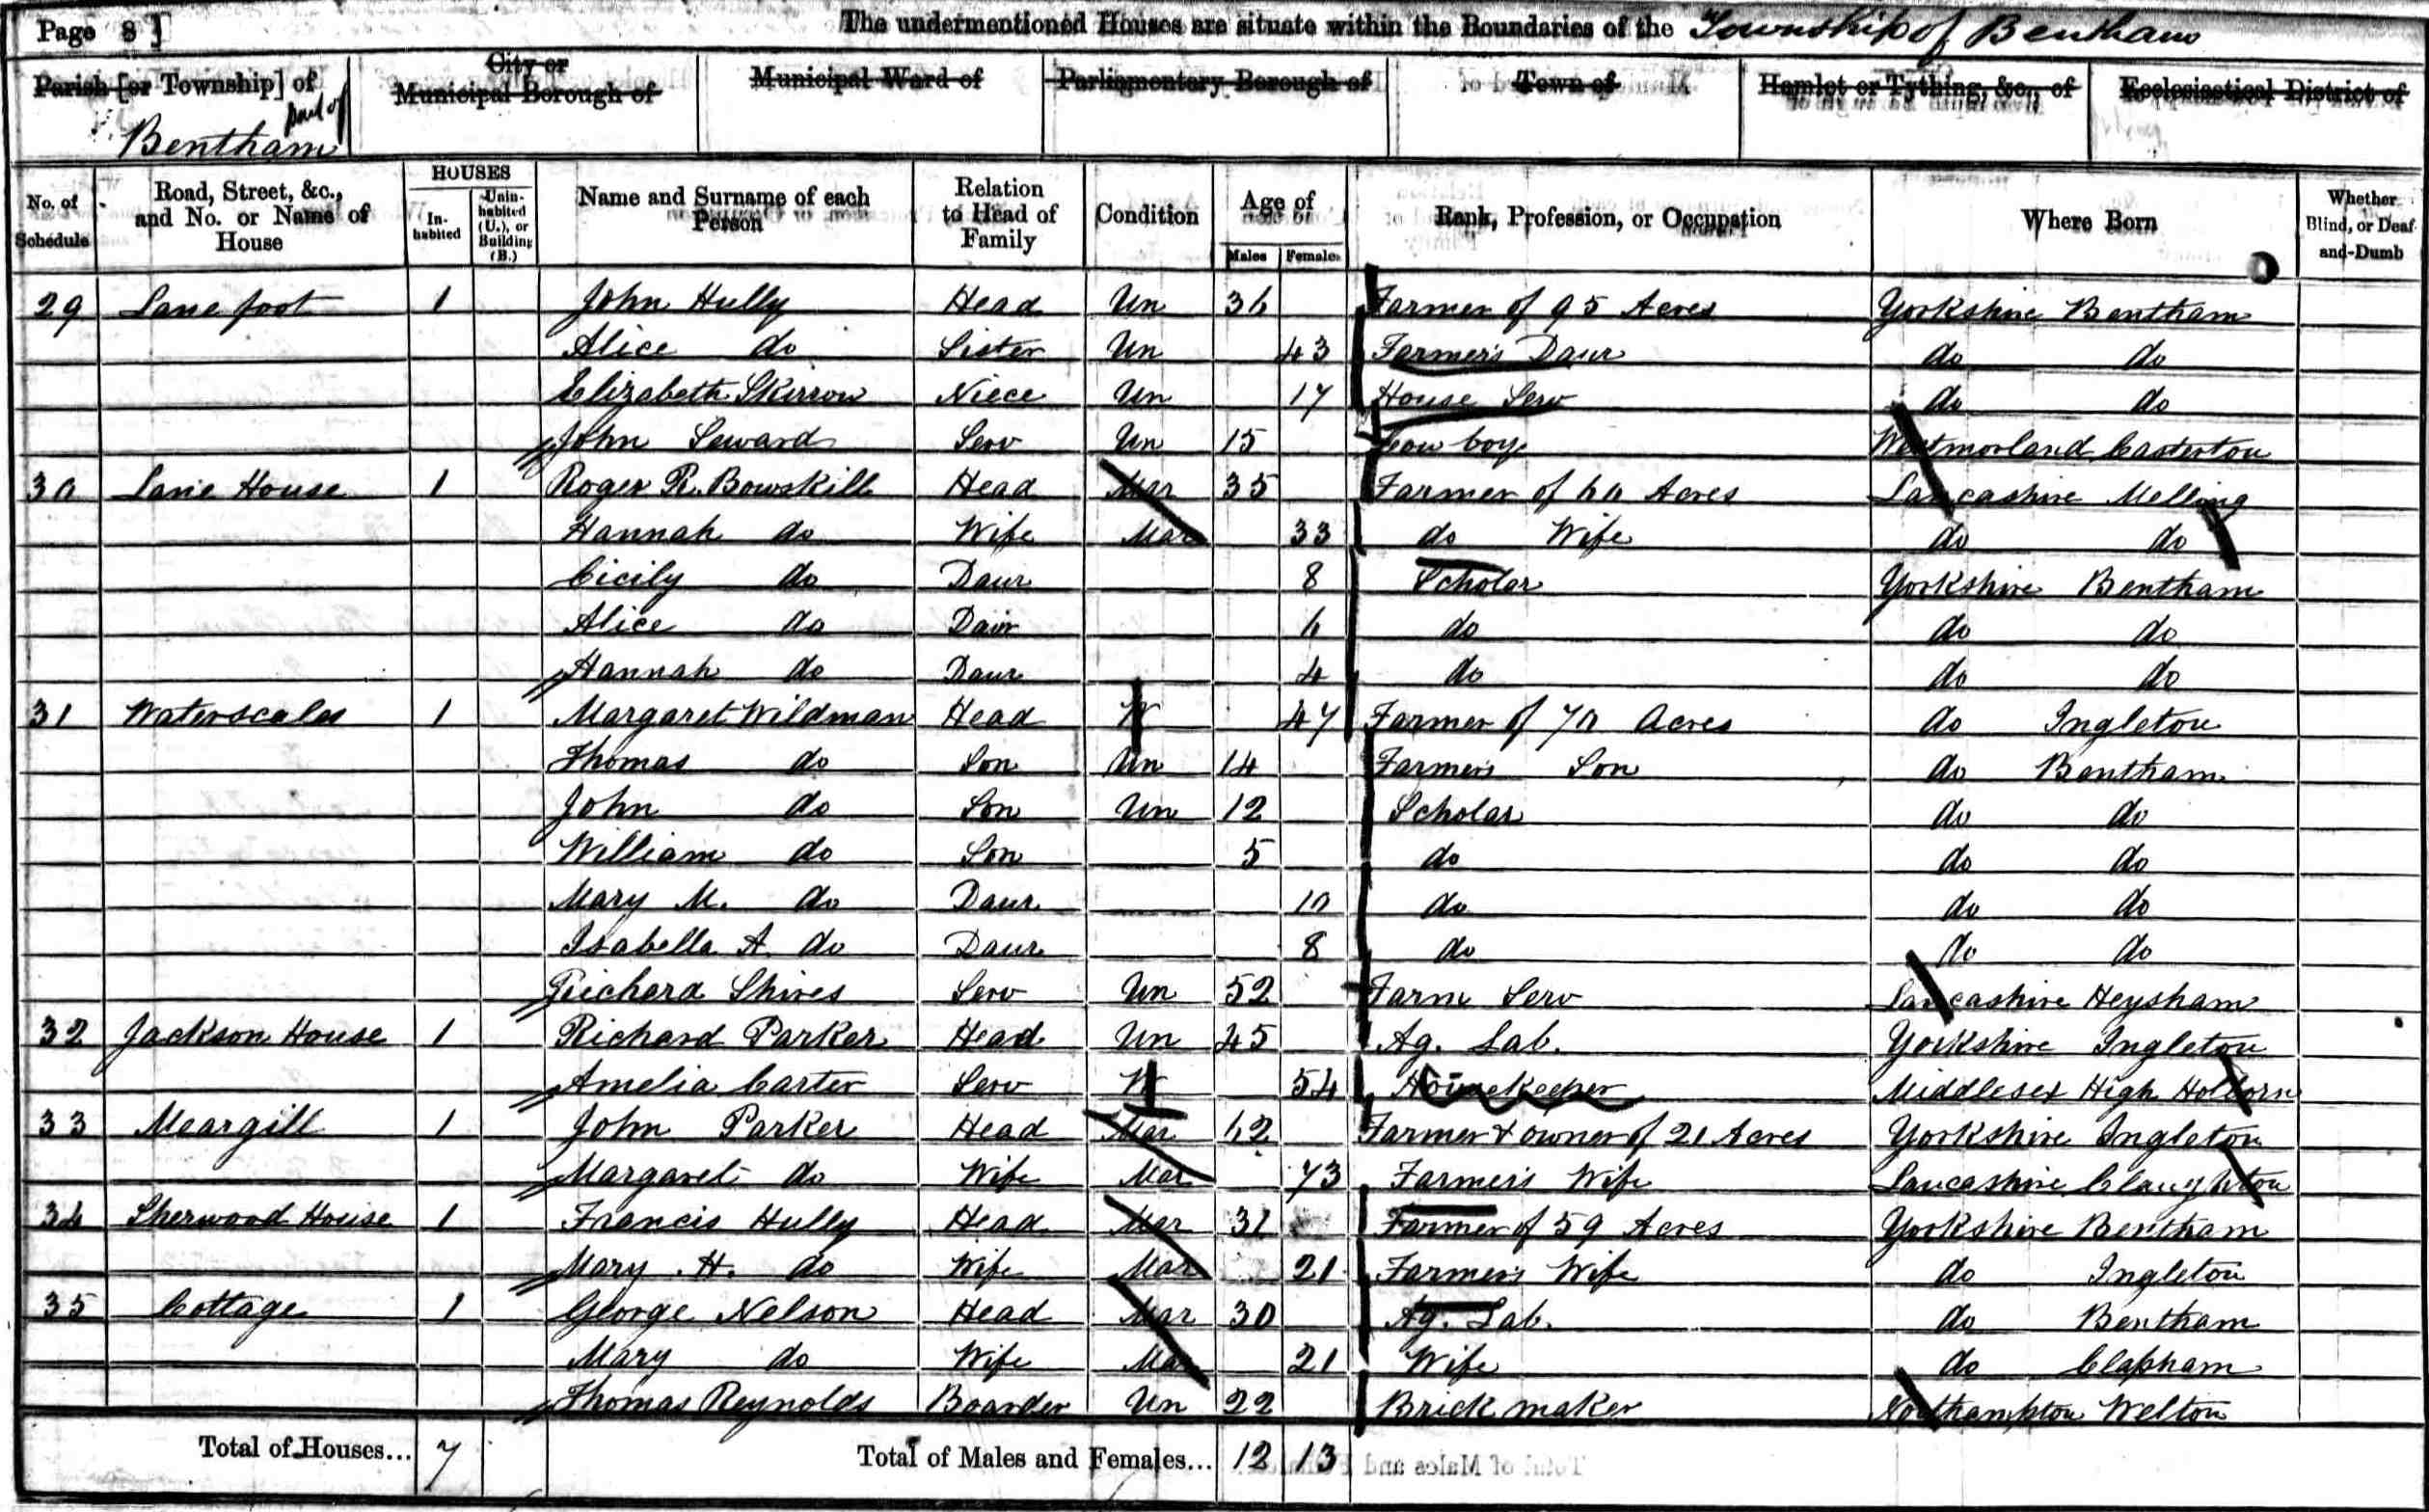 Page 8]
The undermentioned Houses are situate within the Boundaries of the Township of Bentham
Parish [or Township] of part of Bentham
City or Municipal Borough of
Municipal Ward of
Parliamentary Borough of
Town of
Hamlet or Tything, &c., of
Ecclesiastical District of
No. of Schedule
Road, Street, &c., and No. or Name of House
HOUSES
Inhabited
Uninhabited (U.), or Building (B.)
Name and Surname of each Person
Relation to Head of Family
Condition
Age of
Males
Females
Rank, Profession, or Occupation
Where Born
Whether Blind, or Deaf-and-Dumb
29 Lane foot 1 John Hully Head Un 36 Farmer of 95 Acres Yorkshire Bentham
Alice do Sister Un 43 Farmer's Daur do do
Elizabeth Skirrow Niece Un 17 House Serv do do
John Seward Serv Un 15 Cow boy Westmorland Casterton
30 Lane House 1 Roger R. Bowskill Head Mar 35 Farmer of 60 Acres Lancashire Melling
Hannah do Wife Mar 33 do Wife do do
Cicily do Daur 8 Scholar Yorkshire Bentham
Alice do Daur 6 do do do
Hannah do Daur 4 do do do
31 Waterscales 1 Margaret Wildman Head W 47 Farmer of 70 Acres do Ingleton
Thomas do Son Un 14 Farmers Son do Bentham
John do Son Un 12 Scholar do do
William do Son 5 do do do
Mary M. do Daur 10 do do do
Isabella A. do Daur 8 do do do
Richard Shires Serv Un 52 Farm Serv Lancashire Heysham
32 Jackson House 1 Richard Parker Head Un 45 Ag. Lab. Yorkshire Ingleton
Amelia Carter Serv W 54 Housekeeper Middlesex High Holborn
33 Meargill 1 John Parker Head Mar 62 Farmer & owner of 21 Acres Yorkshire Ingleton
Margaret do Wife Mar 73 Farmer's Wife Lancashire Claughton
34 Sherwood House 1 Francis Hully Head Mar 31 Farmer of 59 Acres Yorkshire Bentham
Mary H. do Wife Mar 21 Farmer's Wife do Ingleton
35 Cottage 1 George Nelson Head Mar 30 Ag. Lab. do Bentham
Mary do Wife Mar 21 Wife do Clapham
Thomas Reynolds Boarder Un 22 Brick maker Northampton Welton
Total of Houses... 7 Total of Males and Females... 12 13